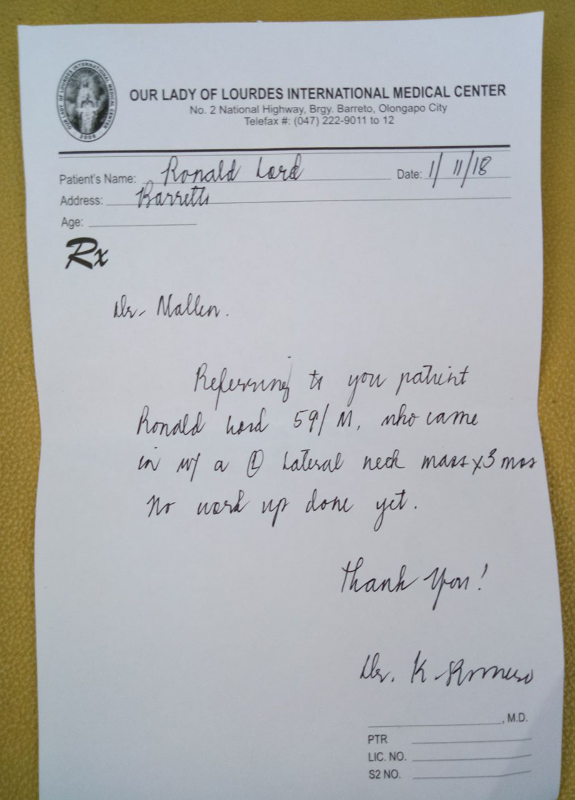 OUR LADY OF LOURDES INTERNATIONAL MEDICAL CENTER
No. 2 National Highway, Brgy. Barreto, Olongapo City
Telefax #: (047) 222-9011 to 12
Patient's Name: Ronald Lord Date: 1/11/18
Address: Barretto
Age:
Rx
Dr. Mallen.
Referring to you patient
Ronald Lord 59/M, who came
in w/ a Lateral neck mass x 3 mos
No work up done yet.
Thank You!
Dr. K
, M.D.
PTR
LIC. NO.
S2 NO.